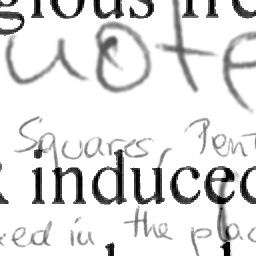 gious
uote
Squares, Pent
induced
in the plac